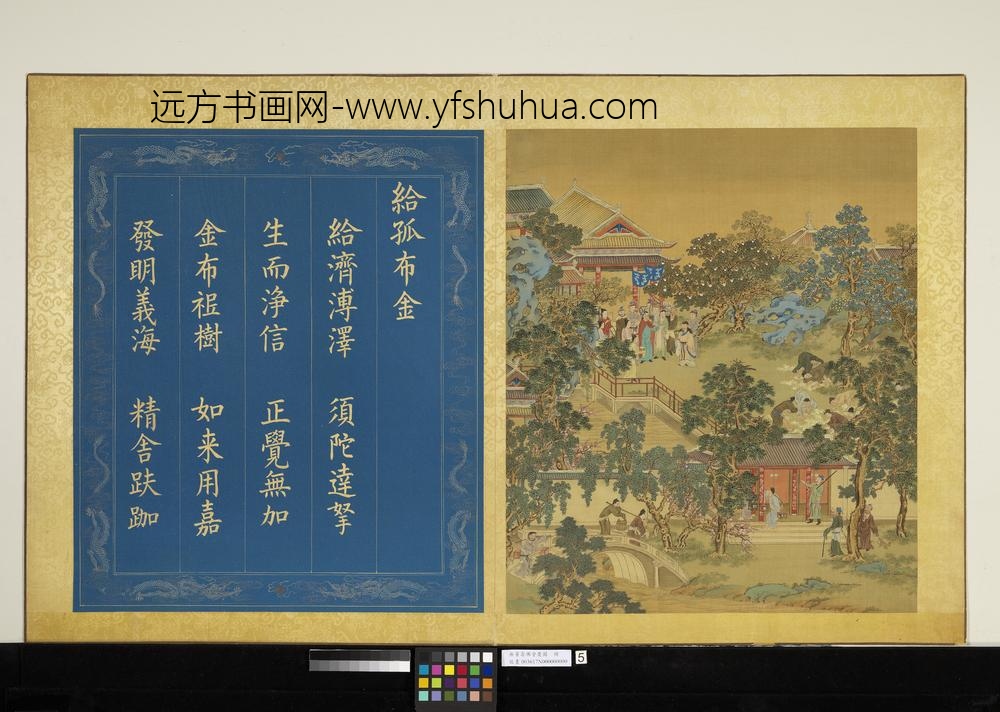 远方书画网-www.yfshuhua.com
給孤布金
給濟溥澤 須陀達拏
生而浄信 正覺無加
金布祗樹 如来用嘉
發明義海 精舍趺跏
5